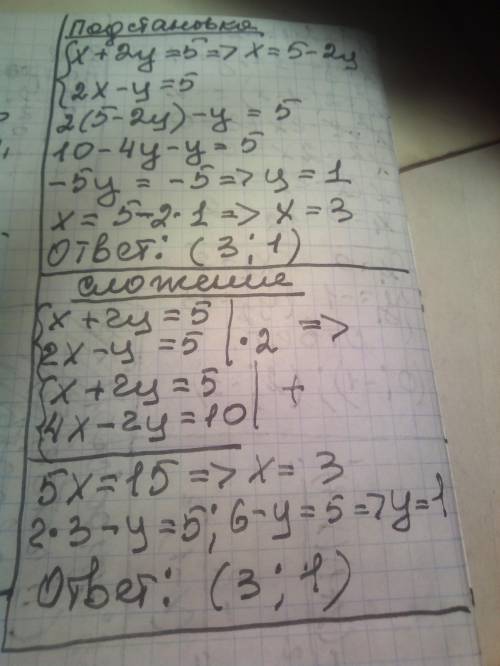 Подстановка
{x + 2y = 5 => x = 5 - 2y
{2x - y = 5
2(5 - 2y) - y = 5
10 - 4y - y = 5
-5y = -5 => y = 1
x = 5 - 2·1 => x = 3
Ответ: (3; 1)
Сложение
{x + 2y = 5
2x - y = 5 | ·2 =>
{x + 2y = 5
4x - 2y = 10 | +
5x = 15 => x = 3
2·3 - y = 5; 6 - y = 5 => y = 1
Ответ: (3; 1)